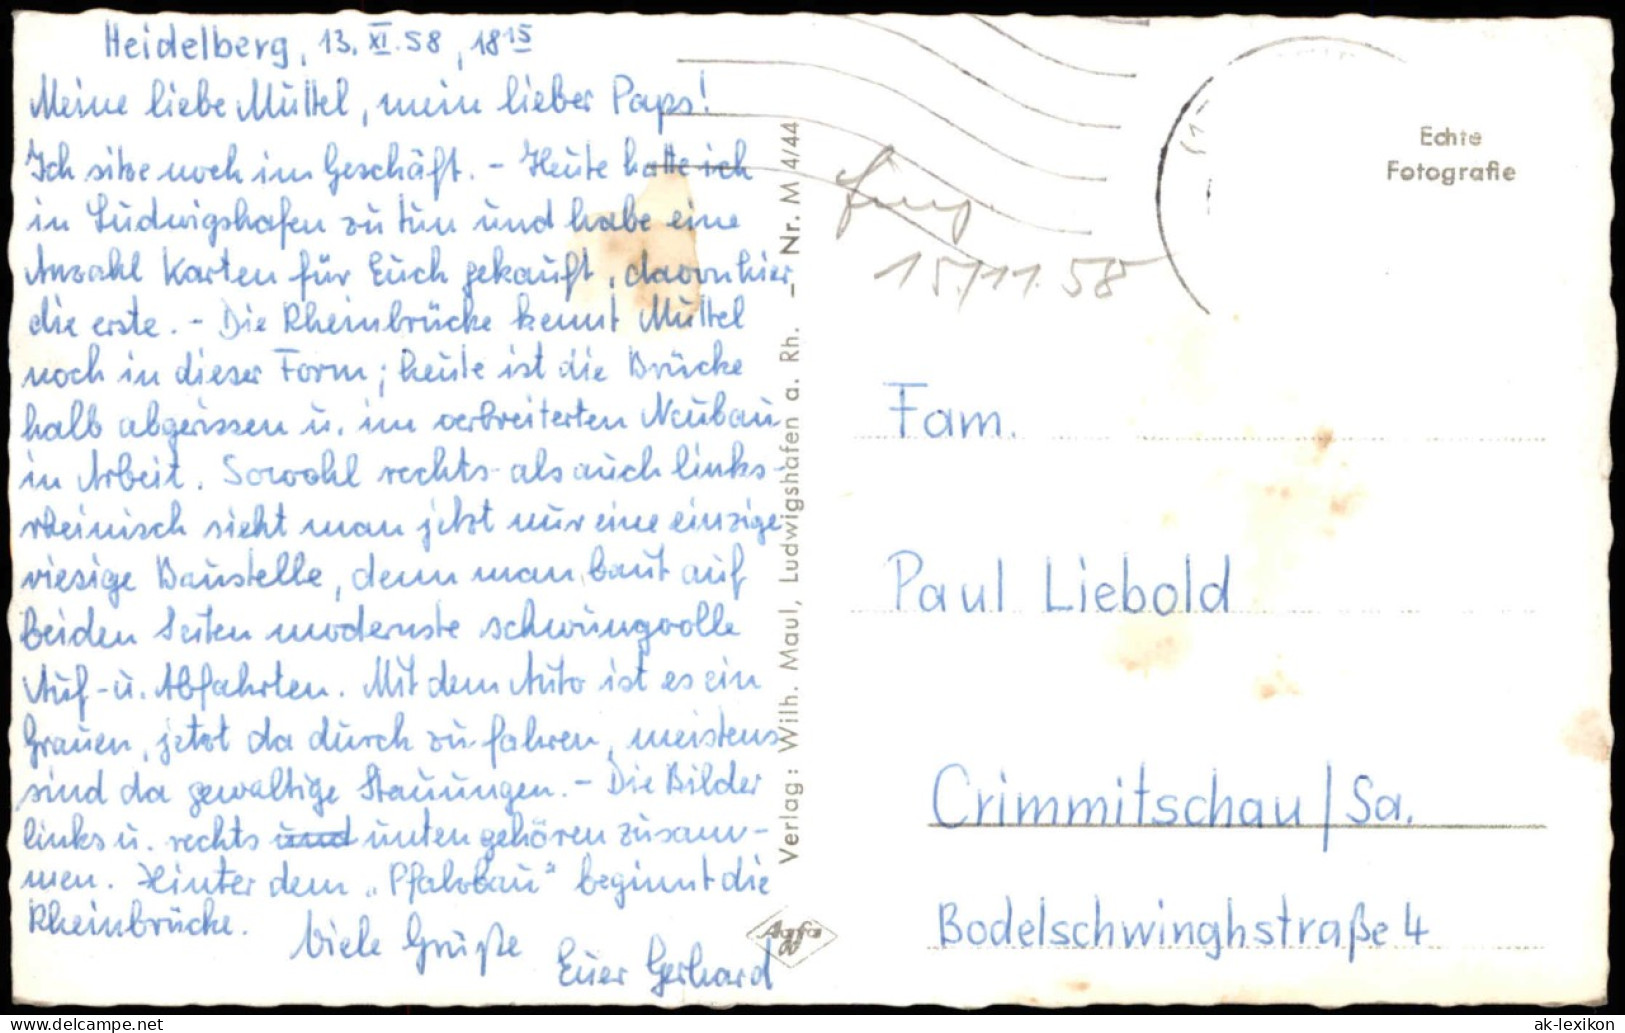 Heidelberg, 13. XI. 58, 18¹⁵
Meine liebe Muttel, mein lieber Paps!
Ich sitze noch im Geschäft. – Heute hatte ich
in Ludwigshafen zu tun und habe eine
Anzahl Karten für Euch gekauft, davon hier
die erste. – Die Rheinbrücke kennt Muttel
noch in dieser Form; heute ist die Brücke
halb abgerissen u. im verbreiterten Neubau
in Arbeit. Sowohl rechts- als auch links-
rheinisch sieht man jetzt nur eine einzige
riesige Baustelle, denn man baut auf
beiden Seiten modernste schwungvolle
Auf- u. Abfahrten. Mit dem Auto ist es ein
Grauen, jetzt da durch zu fahren, meistens
sind da gewaltige Stauungen. – Die Bilder
links u. rechts und unten gehören zusam-
men. Hinter dem „Pfalzbau" beginnt die
Rheinbrücke.
Viele Grüße
Euer Gerhard
Verlag: Wilh. Maul, Ludwigshafen a. Rh. – Nr. M 4/44
Agfa
15/11.58
Echte
Fotografie
Fam.
Paul Liebold
Crimmitschau/Sa.
Bodelschwinghstraße 4
www.ak-ansichtskarten.de
ak-lexikon